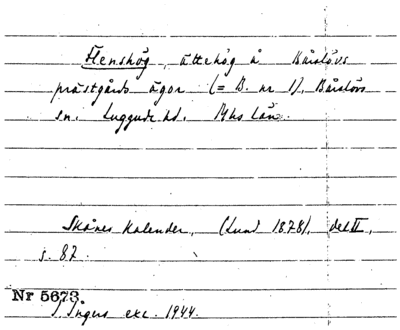 Flenshög, ättehög å Bårslövs
prästgårds ägor (= B. nr 1), Bårslövs
sn. Luggude hd. Mhs län.
Skånes Kalender, (Lund 1878), del II,
s. 87.
Nr 5673.
I. Ingers exc. 1944.